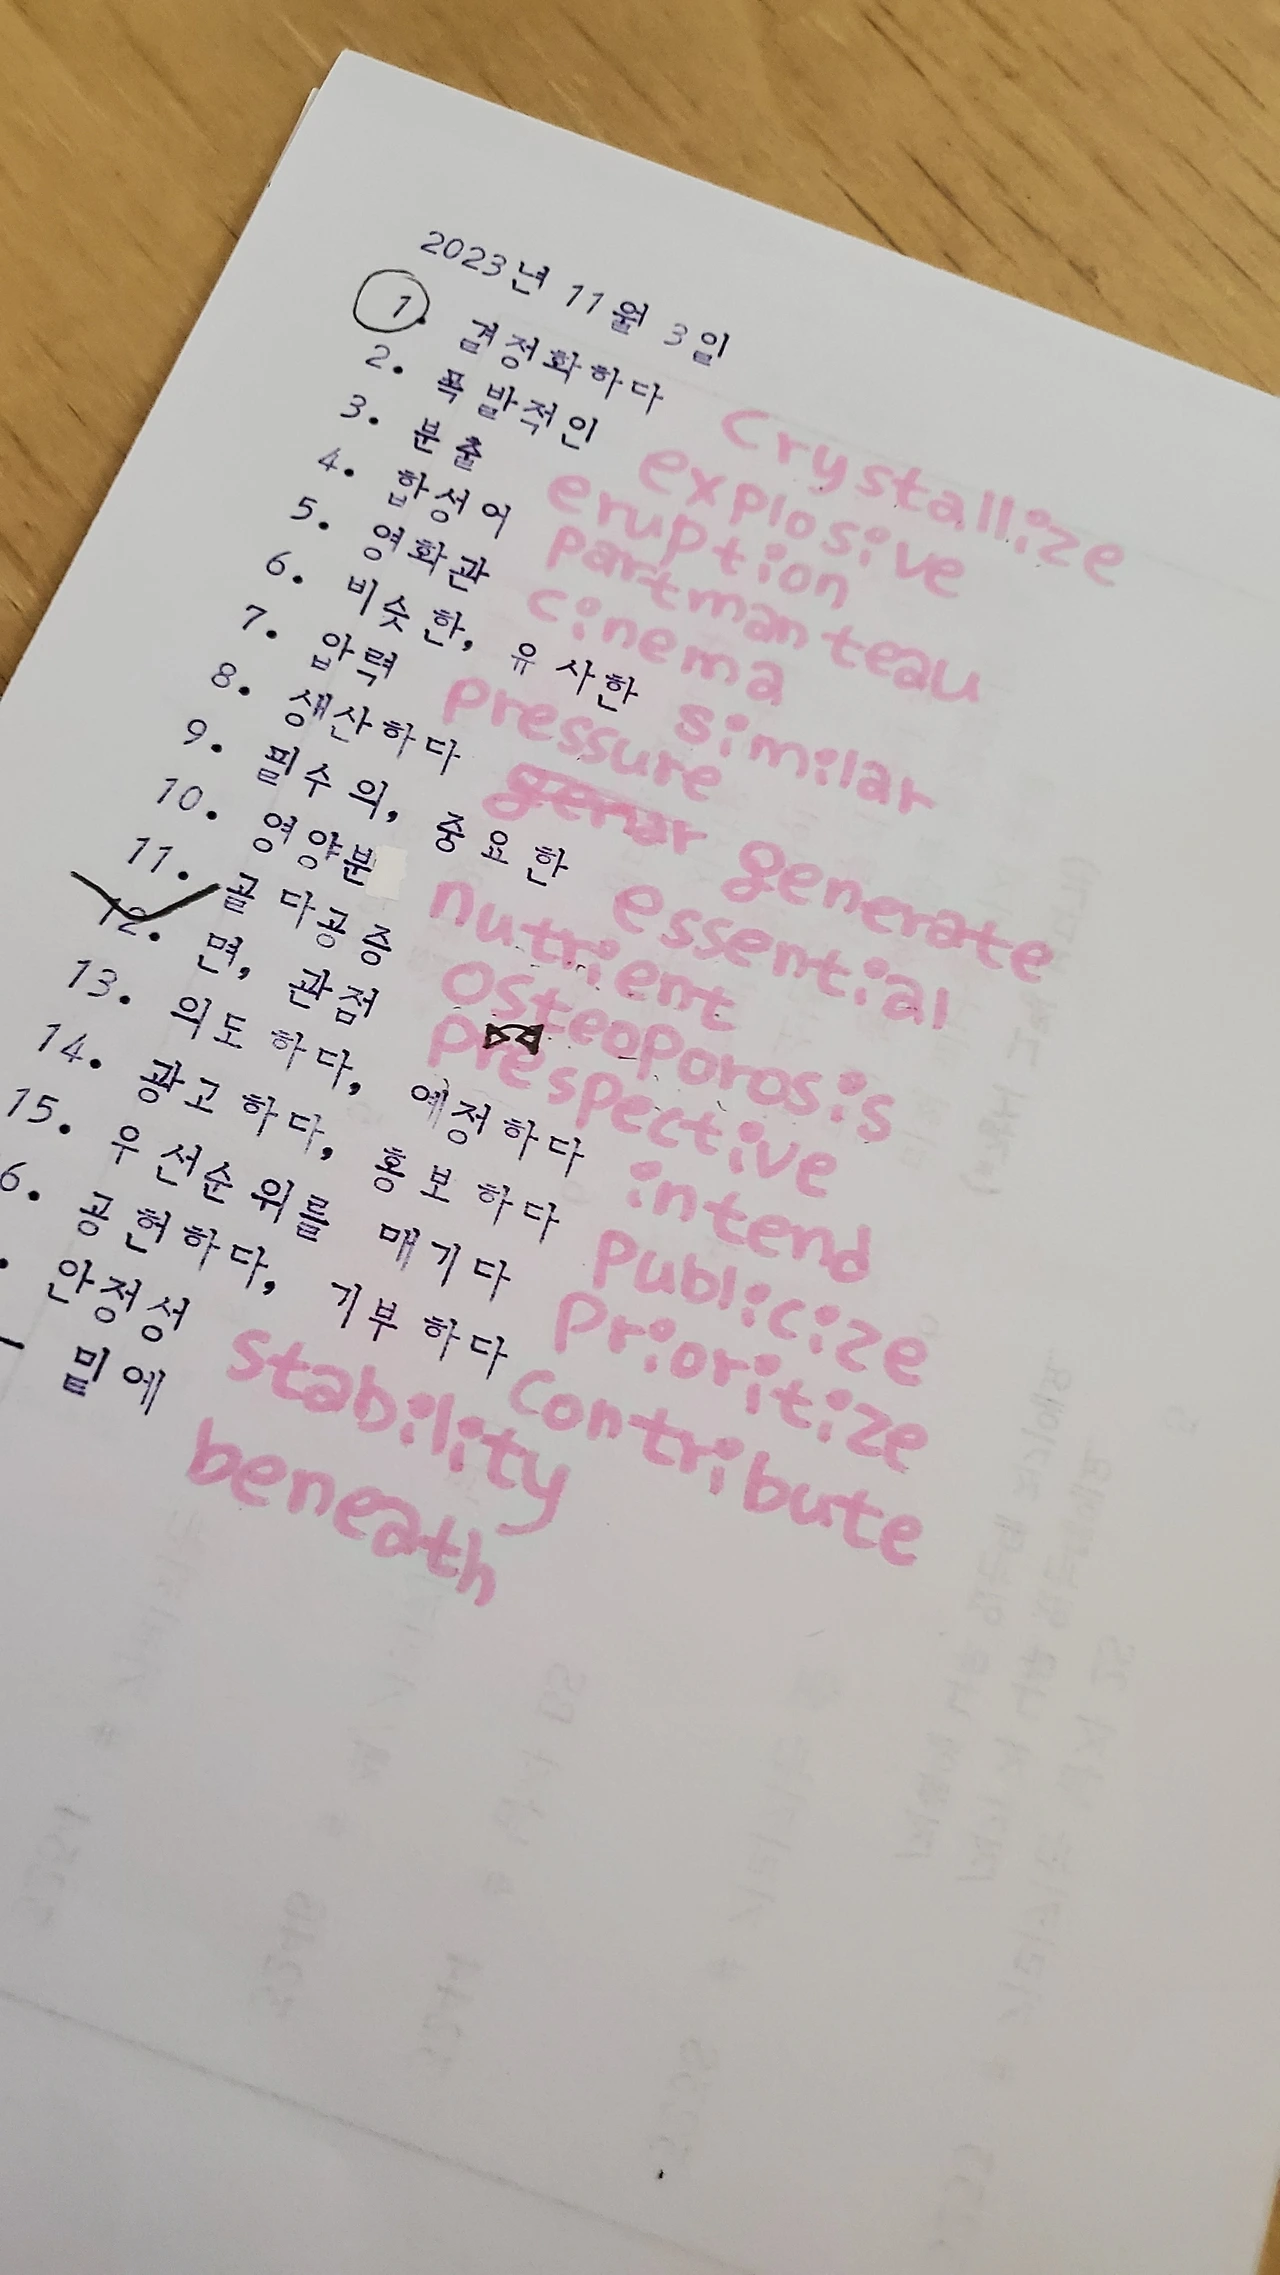 2023년 11월 3일
1. 결정화하다 crystallize
2. 폭발적인 explosive
3. 분출 eruption
4. 합성어 partmanteau
5. 영화관 cinema
6. 비슷한, 유사한 similar
7. 압력 pressure
8. 생산하다 genar generate
9. 필수의, 중요한 essential
10. 영양분 nutrient
11. 골다공증 osteoporosis
12. 면, 관점 prespective
13. 의도하다, 예정하다 intend
14. 광고하다, 홍보하다 publicize
15. 우선순위를 매기다 prioritize
6. 공헌하다, 기부하다 contribute
안정성 stability
밑에 beneath